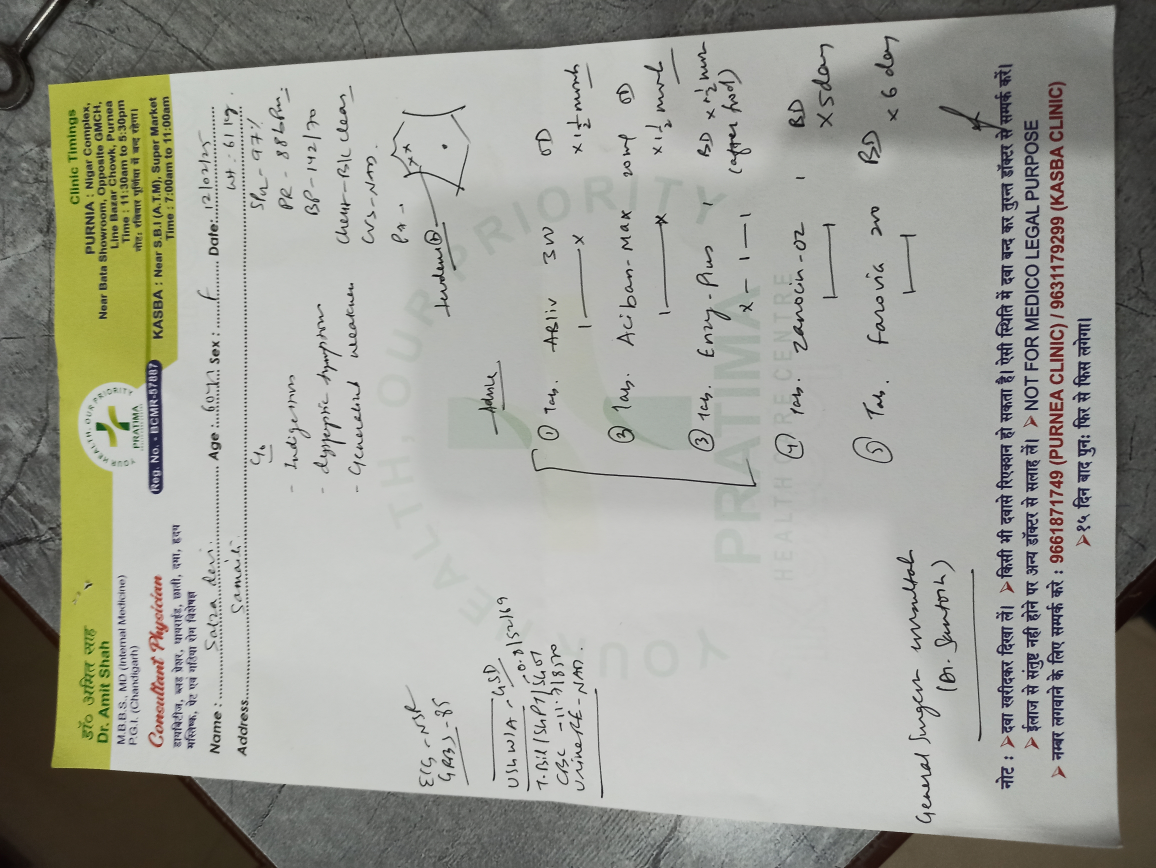 डॉ० अमित साह
Dr. Amit Shah
M.B.B.S., MD (Internal Medicine)
P.G.I. (Chandigarh)
Consultant Physician
डायबिटीज, ब्लड प्रेशर, थायराईड, छाती, दमा, हृदय
मस्तिष्क, पेट एवं गठिया रोग विशेषज्ञ
YOUR HEALTH, OUR PRIORITY
PRATIMA
Reg. No. - BCMR-57887
Clinic Timings
PURNIA : Nigar Complex,
Near Bata Showroom, Opposite GMCH,
Line Bazar Chowk, Purnea
Time : 11:30am to 5:30pm
नोट: रविवार पूर्णिया में बन्द रहेगा।
KASBA : Near S.B.I (A.T.M), Super Market
Time : 7:00am to 11:00am
Name : Sabza devi Age : 60 yr Sex : F Date: 12/02/25
Address Samaili Wt - 61 kg
C/o
- Indigestion
- dyspeptic symptoms
- Generalised weakness
SPO2 - 97%
PR - 88 bpm
BP - 142/70
Chest - B/L clear
CVS - NAD.
P/A -
ECG - NSR
GRBS - 85
USG W/A - GSD
T.Bil/SGPT/SGOT - 0.8/52/69
CBC - 11.7/8500
Urine RE - NAD.
Advice
① Tab. ABliv 300 OD
1 x x 1½ month
② Tab. Aciban-Max 20mg OD
1 x x 1½ month
③ Tab. Enzy-Plus 1 BD x 1½ month
x - 1 - 1 (after food)
④ Tab. Zanocin-OZ 1 BD
1 1 x 5 day
⑤ Tab. Farovia 200 BD
1 1 x 6 day
General Surgeon consultation
(Dr. Santosh)
YOUR HEALTH, OUR PRIORITY
PRATIMA
HEALTH CARE CENTRE
नोट : ➤ दवा खरीदकर दिखा लें। ➤ किसी भी दवासे रिएक्शन हो सकता है। ऐसी स्थिति में दवा बन्द कर तुरन्त डॉक्टर से सम्पर्क करें।
➤ ईलाज से संतुष्ट नही होने पर अन्य डॉक्टर से सलाह लें। ➤ NOT FOR MEDICO LEGAL PURPOSE
➤ नम्बर लगवाने के लिए सम्पर्क करे : 9661871749 (PURNEA CLINIC) / 9631179299 (KASBA CLINIC)
➤ १५ दिन बाद पुनः फिर से फिस लगेगा।